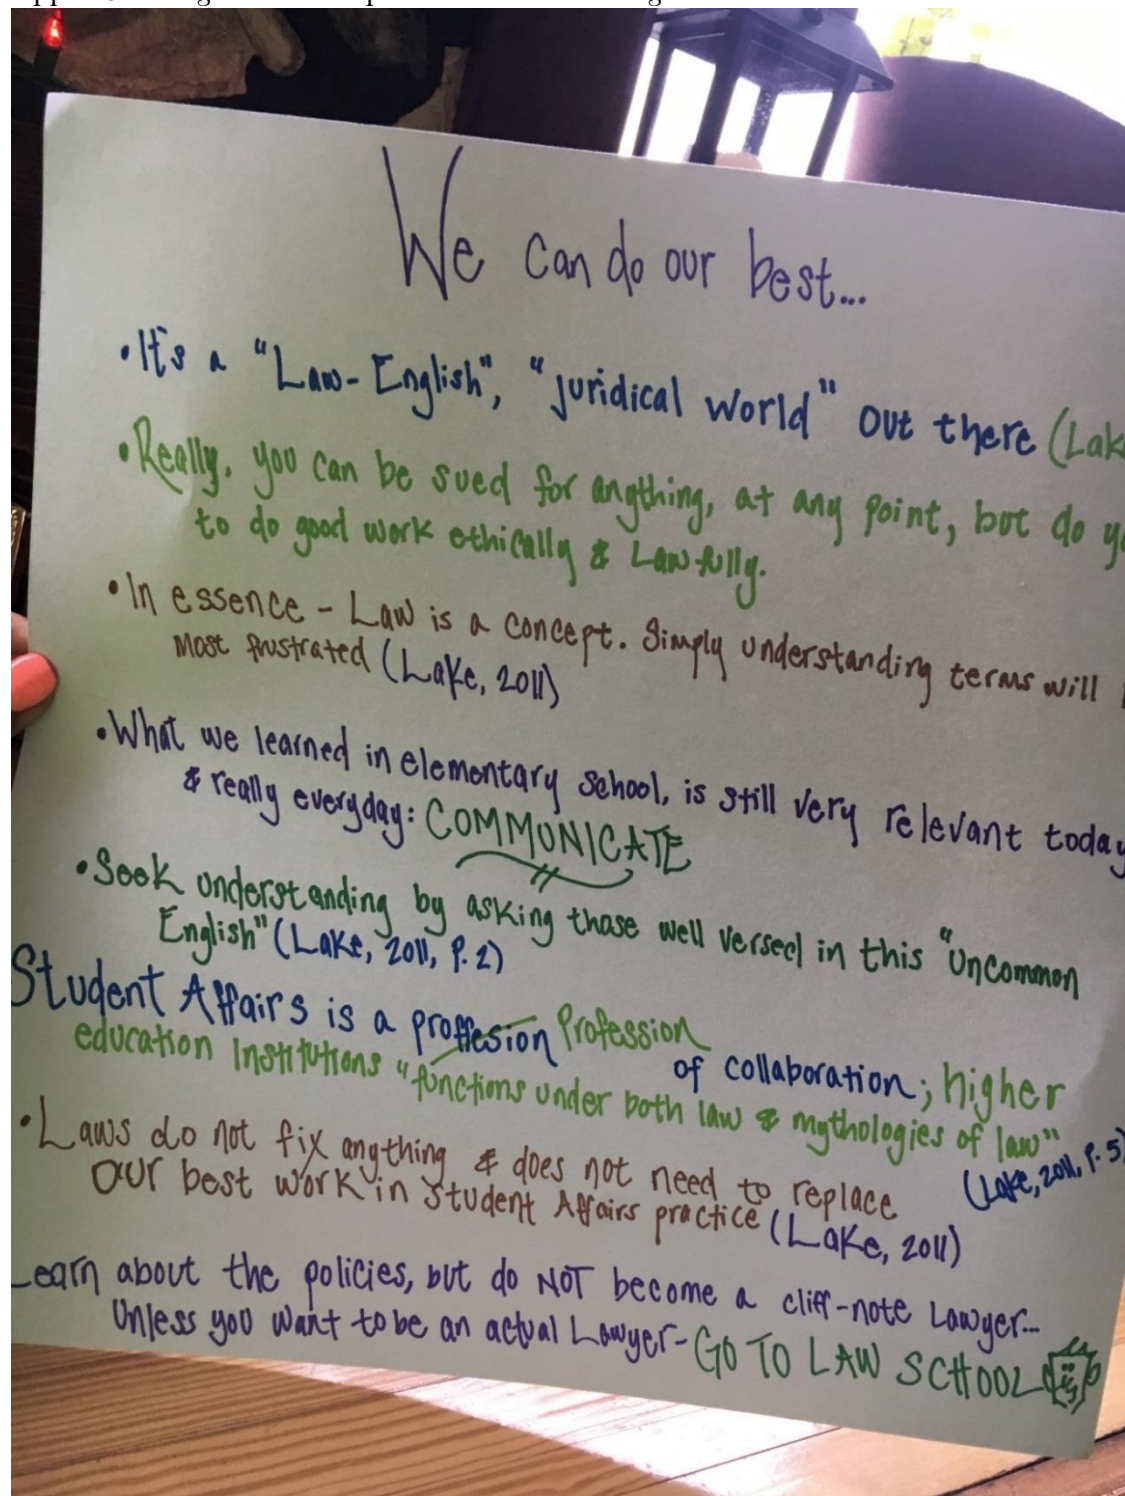 We can do our best...
• It's a "Law-English", "juridical world" out there (Lak
• Really, you can be sued for anything, at any point, but do
to do good work ethically & Lawfully.
• In essence - Law is a concept. Simply understanding terms will
Most frustrated (Lake, 2011)
• What we learned in elementary school, is still very relevant today
& really everyday: COMMUNICATE
• Seek understanding by asking those well versed in this "Uncommon
English" (Lake, 2011, P. 2)
Student Affairs is a proffesion Profession
of collaboration; higher
education Institutions "functions under both law & mythologies of law"
(Lake, 2011, P. 5)
• Laws do not fix anything & does not need to replace
our best work in Student Affairs practice (Lake, 2011)
Learn about the policies, but do NOT become a cliff-note Lawyer...
Unless you want to be an actual Lawyer- GO TO LAW SCHOOL